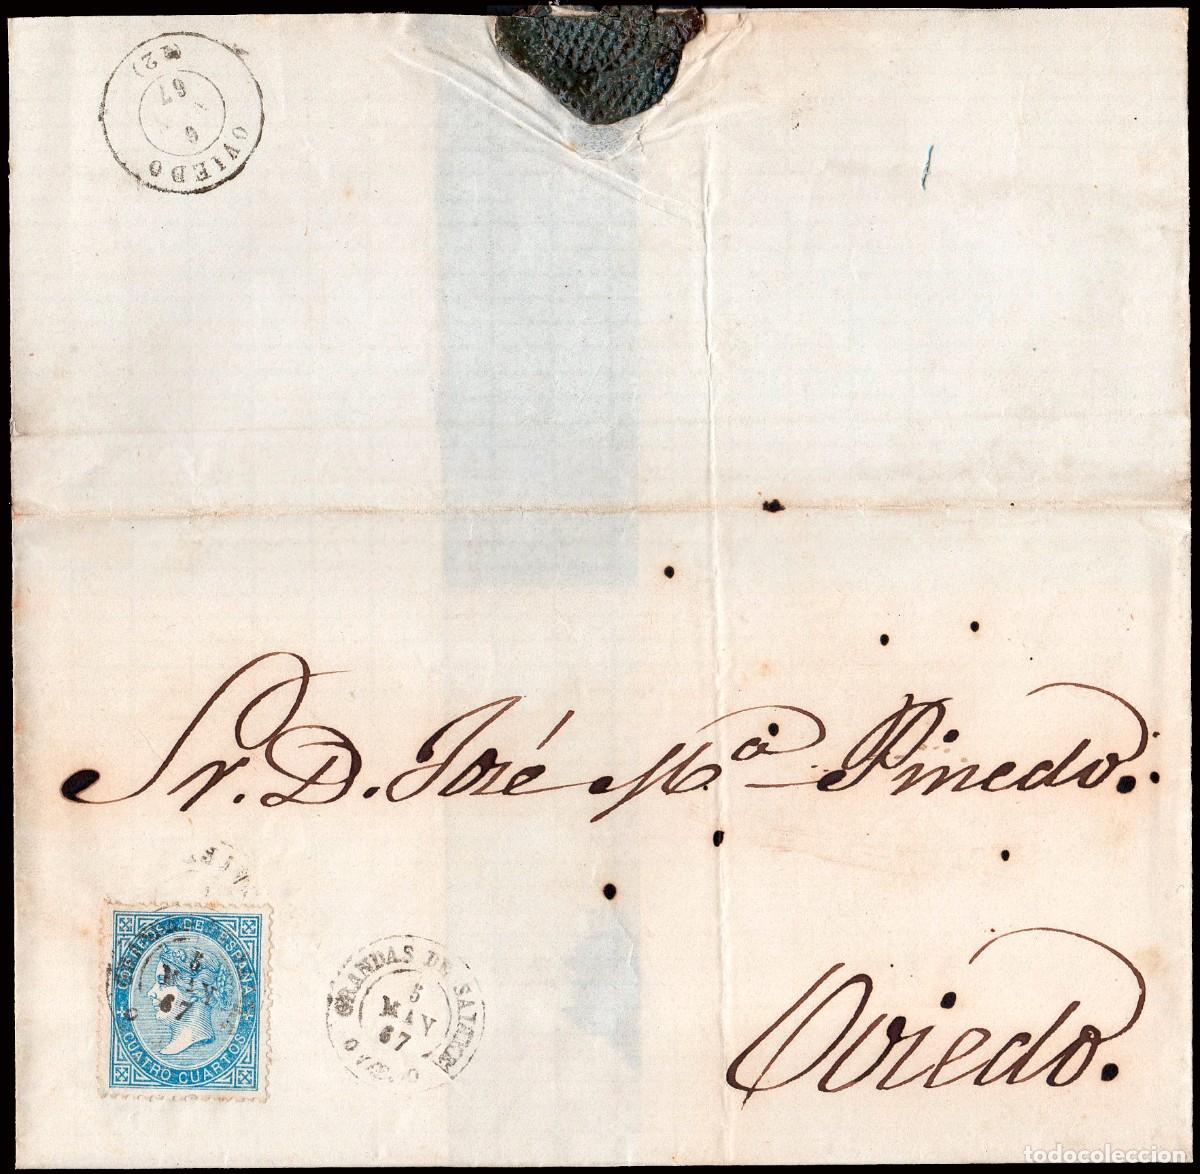 OVIEDO
6
67
(2)
Sr. D. José Mª Pinedo.
Oviedo.
CORREOS DE ESPAÑA
5
MAY
67
CUATRO CUARTOS
GRANDAS DE SALIME
5
MAY
67
OVIEDO
todocoleccion